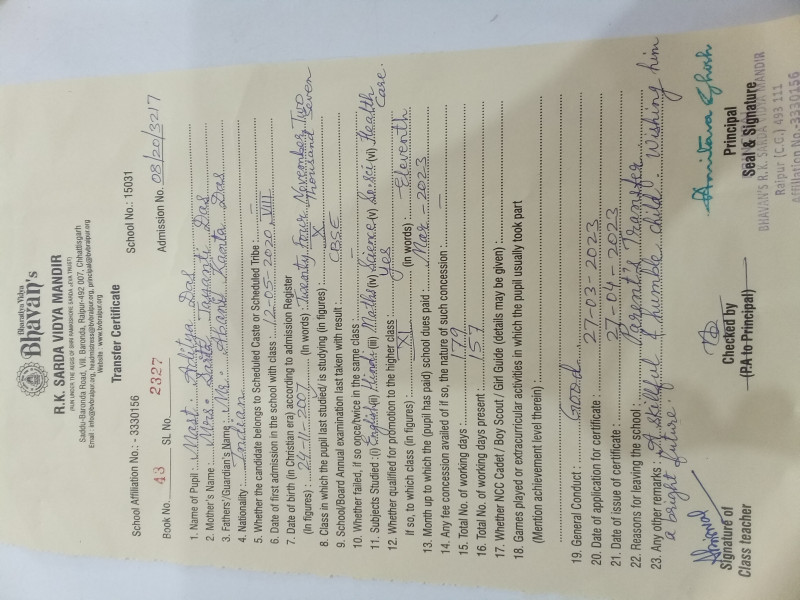 Bharatiya Vidya
Bhavan's
R.K. SARDA VIDYA MANDIR
(RUN UNDER THE AEGIS OF SHRI RAMKISHORE SARDA JEHA TRUST)
Saddu-Baronda Road, Vill. Baronda, Raipur-492 007, Chhattisgarh
Email : info@bvbraipur.org, headmistress@bvbraipur.org, principal@bvbraipur.org
Website : www.bvbraipur.org
Transfer Certificate
School Affiliation No.: - 3330156 School No.: 15031
Book No. 43 SL No. 2327 Admission No. 08/20/3217
1. Name of Pupil : Mast. Aditya Das
2. Mother's Name : Mrs. Sarita Jayanti Das
3. Fathers'/Guardian's Name : Mr. Abani Kanta Das
4. Nationality : Indian
5. Whether the candidate belongs to Scheduled Caste or Scheduled Tribe : –
6. Date of first admission in the school with class : 12-05-2020, VIII
7. Date of birth (in Christian era) according to admission Register
(In figures) : 24-11-2007 (In words) : Twenty Four November Two Thousand Seven
8. Class in which the pupil last studied/ is studying (in figures) : X
9. School/Board Annual examination last taken with result : CBSE
10. Whether failed, if so once/twice in the same class –
11. Subjects Studied :(i) English (ii) Hindi (iii) Maths (iv) Science (v) So.sci (vi) Health Care.
12. Whether qualified for promotion to the higher class : Yes
If so, to which class (in figures) : XI (in words) : Eleventh
13. Month up to which the (pupil has paid) school dues paid : Mar - 2023
14. Any fee concession availed of if so, the nature of such concession : –
15. Total No. of working days : 179
16. Total No. of working days present : 157
17. Whether NCC Cadet / Boy Scout / Girl Guide (details may be given) :
18. Games played or extracurricular activities in which the pupil usually took part
(Mention achievement level therein) :
19. General Conduct : Good
20. Date of application for certificate : 27-03-2023
21. Date of issue of certificate : 27-04-2023
22. Reasons for leaving the school : Parent's Transfer
23. Any other remarks : A skillful & humble child. Wishing him
a bright future.
Signature of
Class teacher
Checked by
(P.A to Principal)
Amitava Ghosh
Principal
Seal & Signature
BHAVAN'S R.K. SARDA VIDYA MANDIR
Raipur (C.G.) 493 111
Affiliation No-3330156